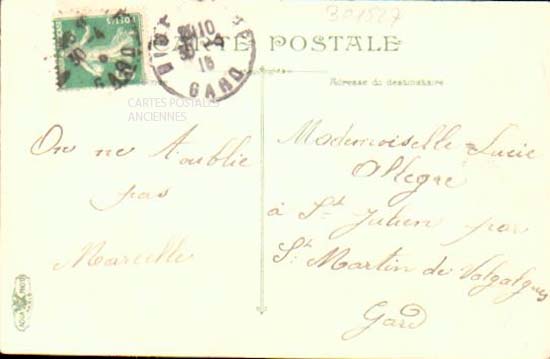 301527
CARTE POSTALE
Adresse du destinataire
10
16
GARD
GARD
CARTES POSTALES
ANCIENNES
On ne t'oublie
pas
Marcelle
Mademoiselle Lucie
Allegre
à St Julien par
St Martin de Valgalgues
Gard